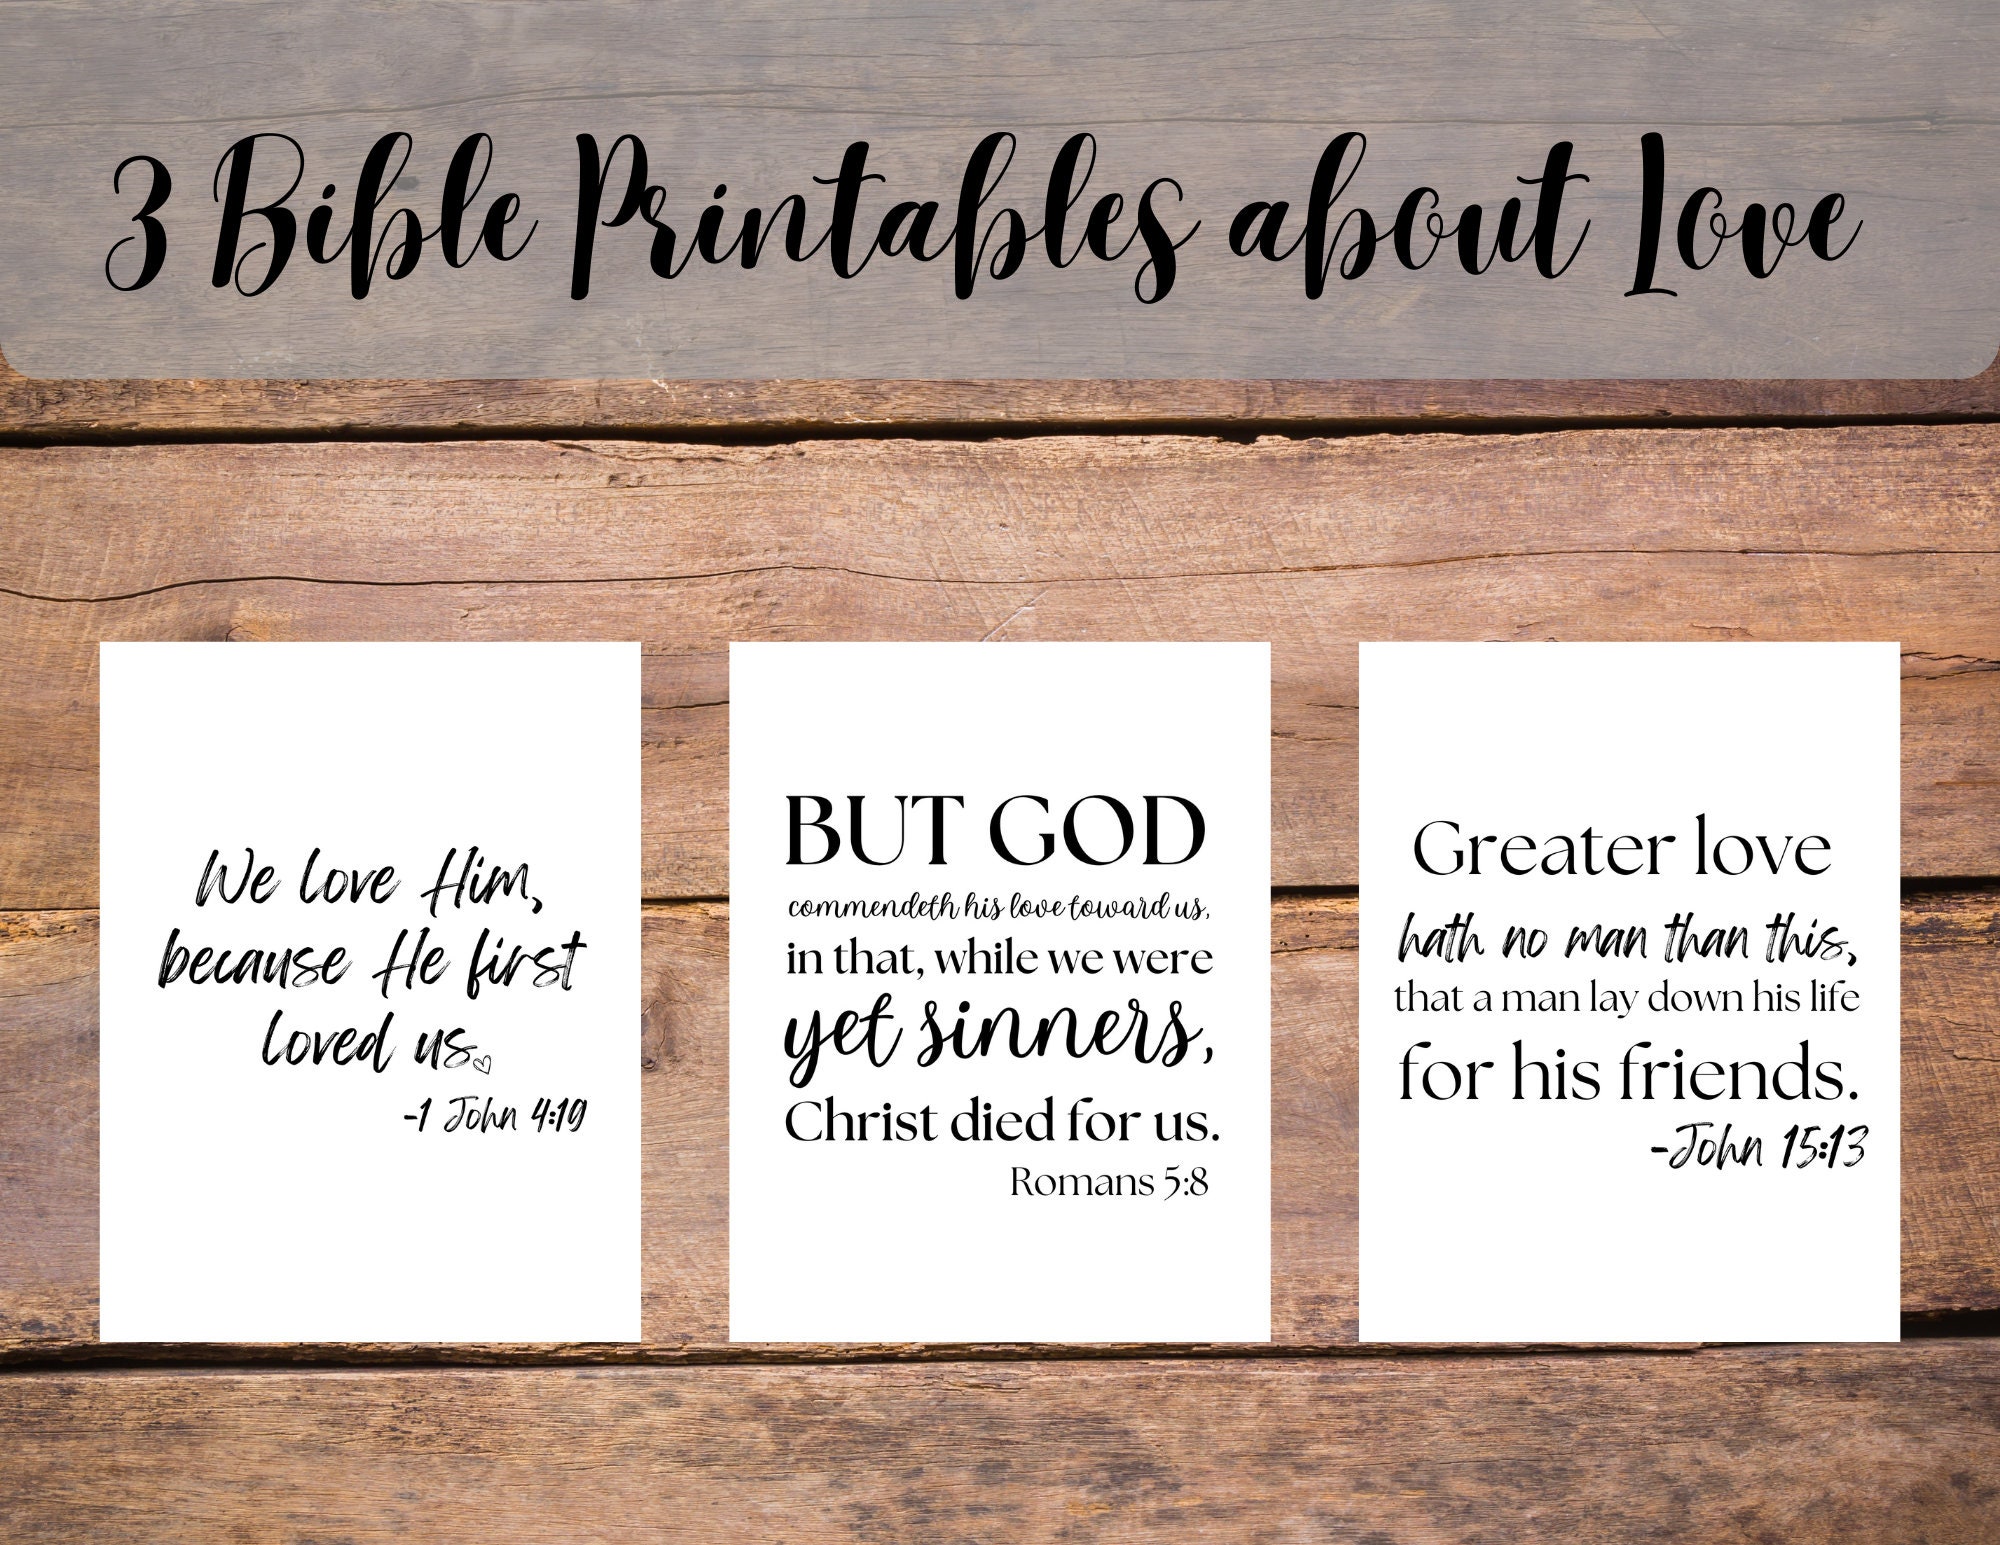 3 Bible Printables about Love
We love Him,
because He first
loved us.
-1 John 4:19
BUT GOD
commendeth his love toward us,
in that, while we were
yet sinners,
Christ died for us.
Romans 5:8
Greater love
hath no man than this,
that a man lay down his life
for his friends.
-John 15:13